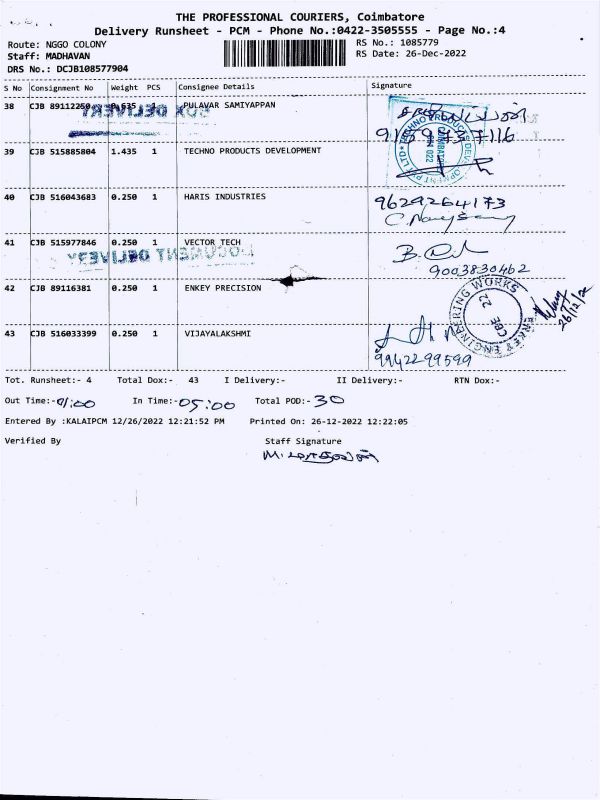 THE PROFESSIONAL COURIERS, Coimbatore
Delivery Runsheet - PCM - Phone No.:0422-3505555 - Page No.:4
Route: NGGO COLONY
Staff: MADHAVAN
DRS No.: DCJB108577904
RS No.: 1085779
RS Date: 26-Dec-2022
S No Consignment No Weight PCS Consignee Details Signature
38 CJB 89112250 0.635 1 PULAVAR SAMIYAPPAN
39 CJB 515885804 1.435 1 TECHNO PRODUCTS DEVELOPMENT
TECHNO PRODUCTS DEVELOPMENT PVT LTD
40 CJB 516043683 0.250 1 HARIS INDUSTRIES 9629264173
41 CJB 515977846 0.250 1 VECTOR TECH
DOCUMENT DELIVERY
9003830462
42 CJB 89116381 0.250 1 ENKEY PRECISION
ENKEY ENGINEERING WORKS
CBE 22
26/12/22
43 CJB 516033399 0.250 1 VIJAYALAKSHMI
9942299599
Tot. Runsheet:- 4 Total Dox:- 43 I Delivery:- II Delivery:- RTN Dox:-
Out Time:- 01:00 In Time:- 05:00 Total POD:- 30
Entered By :KALAIPCM 12/26/2022 12:21:52 PM Printed On: 26-12-2022 12:22:05
Verified By Staff Signature
M. மாதவன்